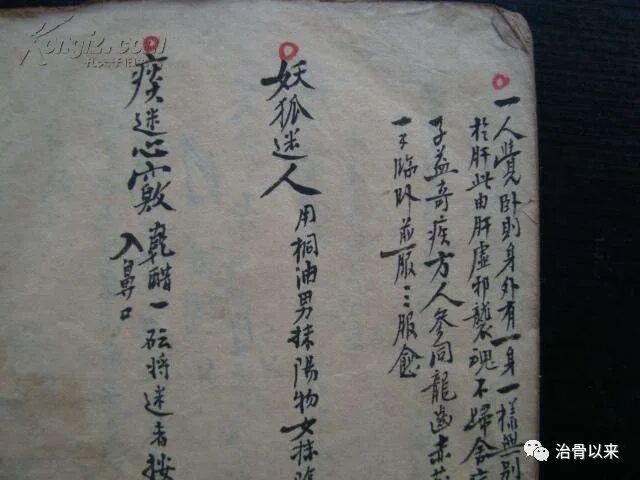 一人覺卧則身外有一身一樣無別
於肝此由肝虛邪襲魂不歸舍
子益奇疾方人參同龍齒赤茯
一下臨卧前服三服愈
妖狐迷人
用桐油男抹陽物女抹陰
痰迷心竅
乾醋一砝將迷者按
入鼻口
Kongfz.com
治骨以来